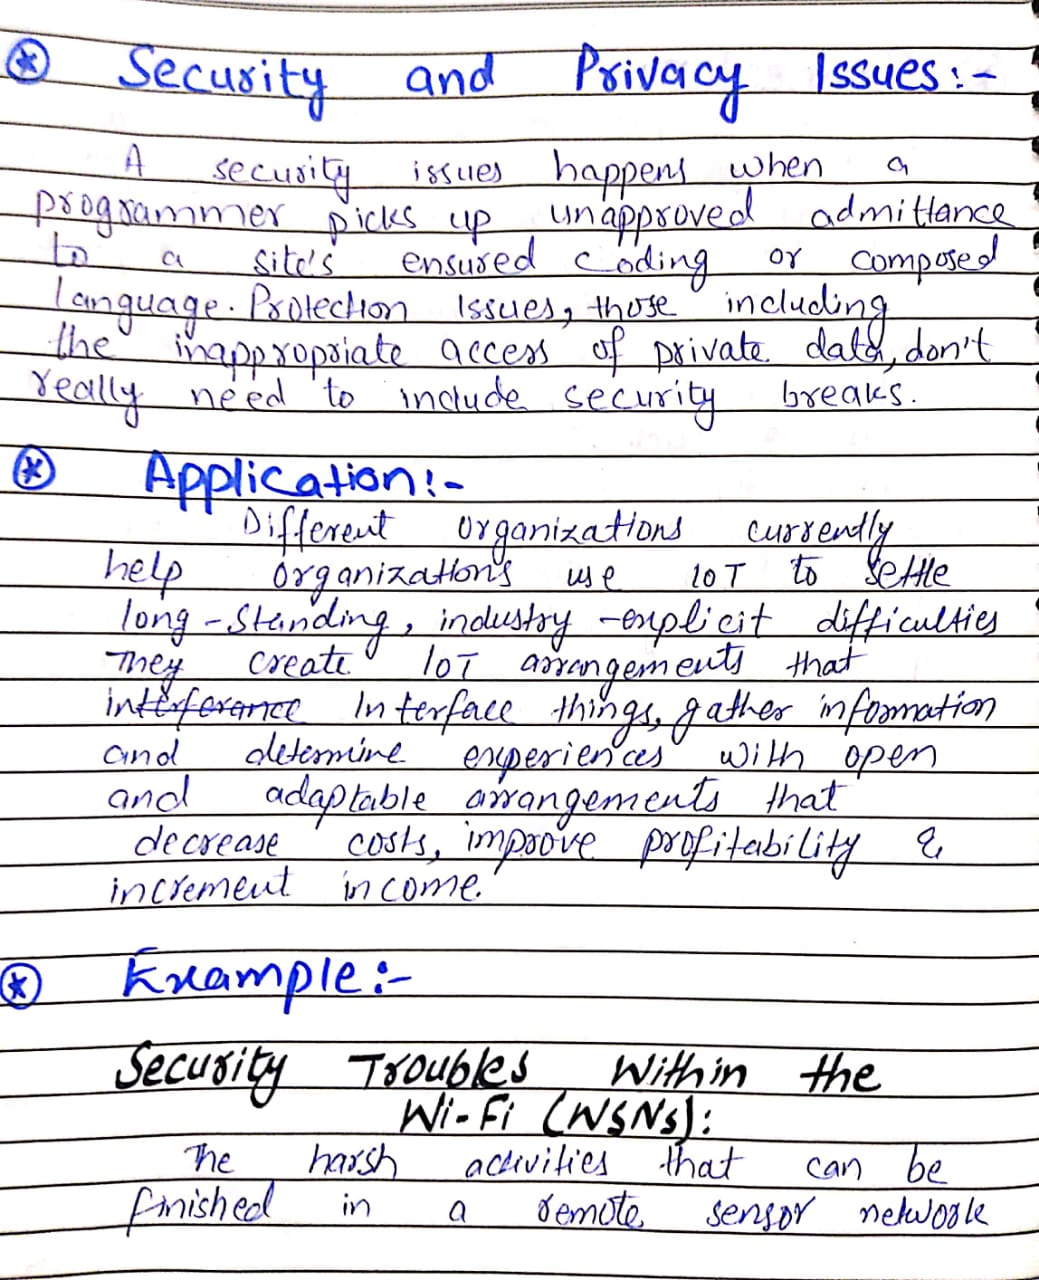 Security and Privacy Issues:-
A security issues happens when a
programmer picks up unapproved admittance
to a site's ensured coding or composed
language. Protection Issues, those including
the inappropriate access of private data, don't
really need to include security breaks.
Application:-
Different organizations currently
help organizations use IOT to settle
long-standing, industry-explicit difficulties
They create IoT arrangements that
interferance Interface things, gather information
and determine experiences with open
and adaptable arrangements that
decrease costs, improve profitability &
increment income.
Example:-
Security Troubles Within the
Wi-Fi (WSNs):
The harsh activities that can be
finished in a remote sensor network